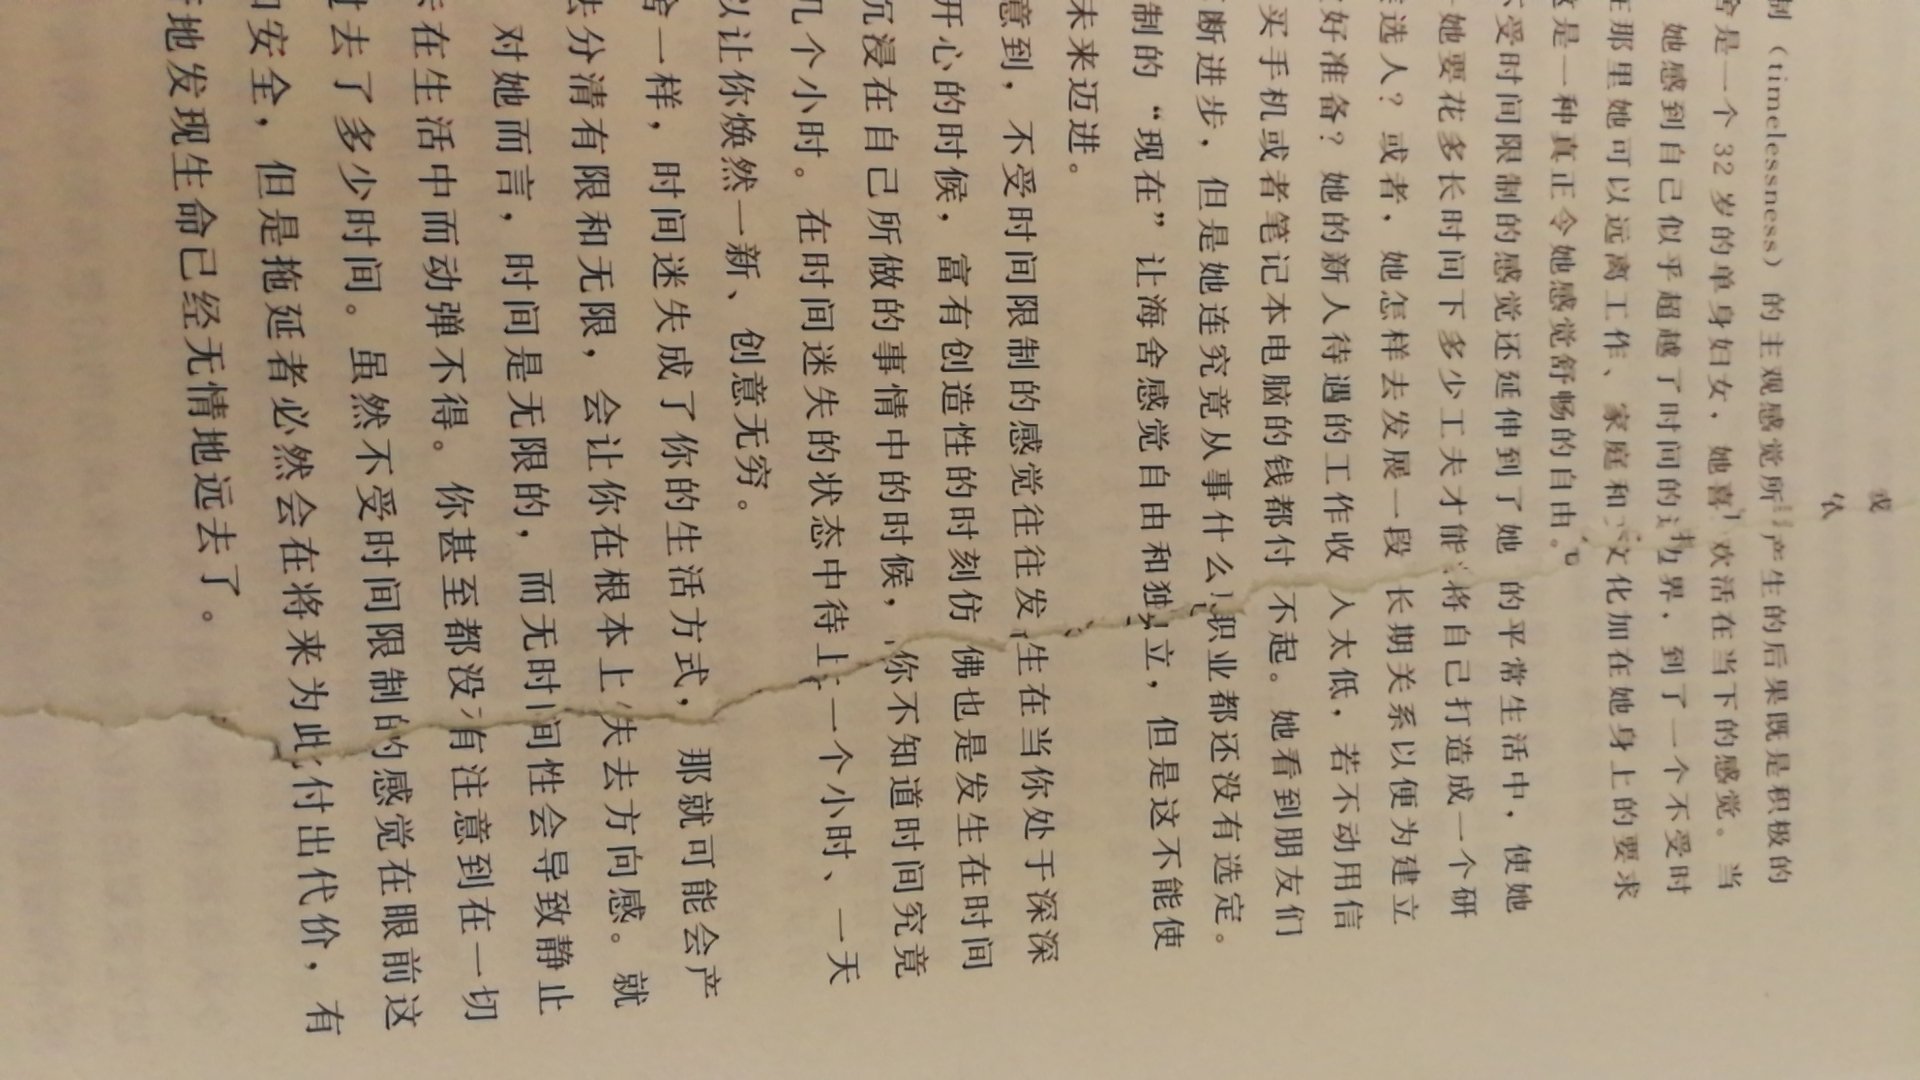 制（timelessness）的主观感觉所产生的后果既是积极的
舍是一个32岁的单身妇女，她喜欢活在当下的感觉。当
她感到自己似乎超越了时间的边界，到了一个不受时
在那里她可以远离工作、家庭和文化加在她身上的要求
这是一种真正令她感觉舒畅的自由。
不受时间限制的感觉还延伸到了她的平常生活中，使她
她要花多长时间下多少工夫才能将自己打造成一个研
选人？或者，她怎样去发展一段长期关系以便为建立
好准备？她的新人待遇的工作收入太低，若不动用信
买手机或者笔记本电脑的钱都付不起。她看到朋友们
断进步，但是她连究竟从事什么职业都还没有选定。
制的“现在”让海舍感觉自由和独立，但是这不能使
未来迈进。
意到，不受时间限制的感觉往往发生在当你处于深深
开心的时候，富有创造性的时刻仿佛也是发生在时间
沉浸在自己所做的事情中的时候，你不知道时间究竟
几个小时。在时间迷失的状态中待上一个小时、一天
以让你焕然一新、创意无穷。
舍一样，时间迷失成了你的生活方式，那就可能会产
去分清有限和无限，会让你在根本上失去方向感。就
对她而言，时间是无限的，而无时间性会导致静止
在生活中而动弹不得。你甚至都没有注意到在一切
过去了多少时间。虽然不受时间限制的感觉在眼前这
和安全，但是拖延者必然会在将来为此付出代价，有
地发现生命已经无情地远去了。